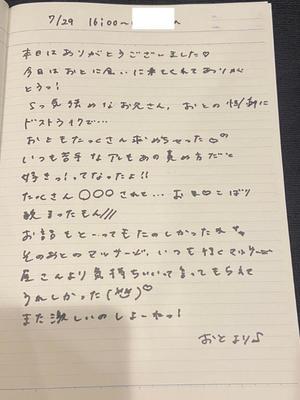 7/29 16:00〜
本日はありがとうございました♡
今日はおとに会いに来てくれてありが
とうっ!
Sっ気強めなお兄さん、おとの性癖に
ドストライクで…
おともたっくさん求めちゃった♡
いつも苦手な
もあの責め方だと
好きっ!ってなったよ!!
たっくさん〇〇〇されて…
っぱり
もん///
お話もとーってもたのしかった
そのあとのマッサージ、いつも行くマッサージ
屋さんより気持ちいいって言ってもらえて
うれしかった
♡
また激しいのしよーねっ!
おとより♪